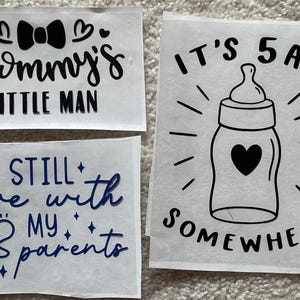 ommy's
ITTLE MAN
STILL
e with
MY
parents
IT'S 5 A
SOMEWHE